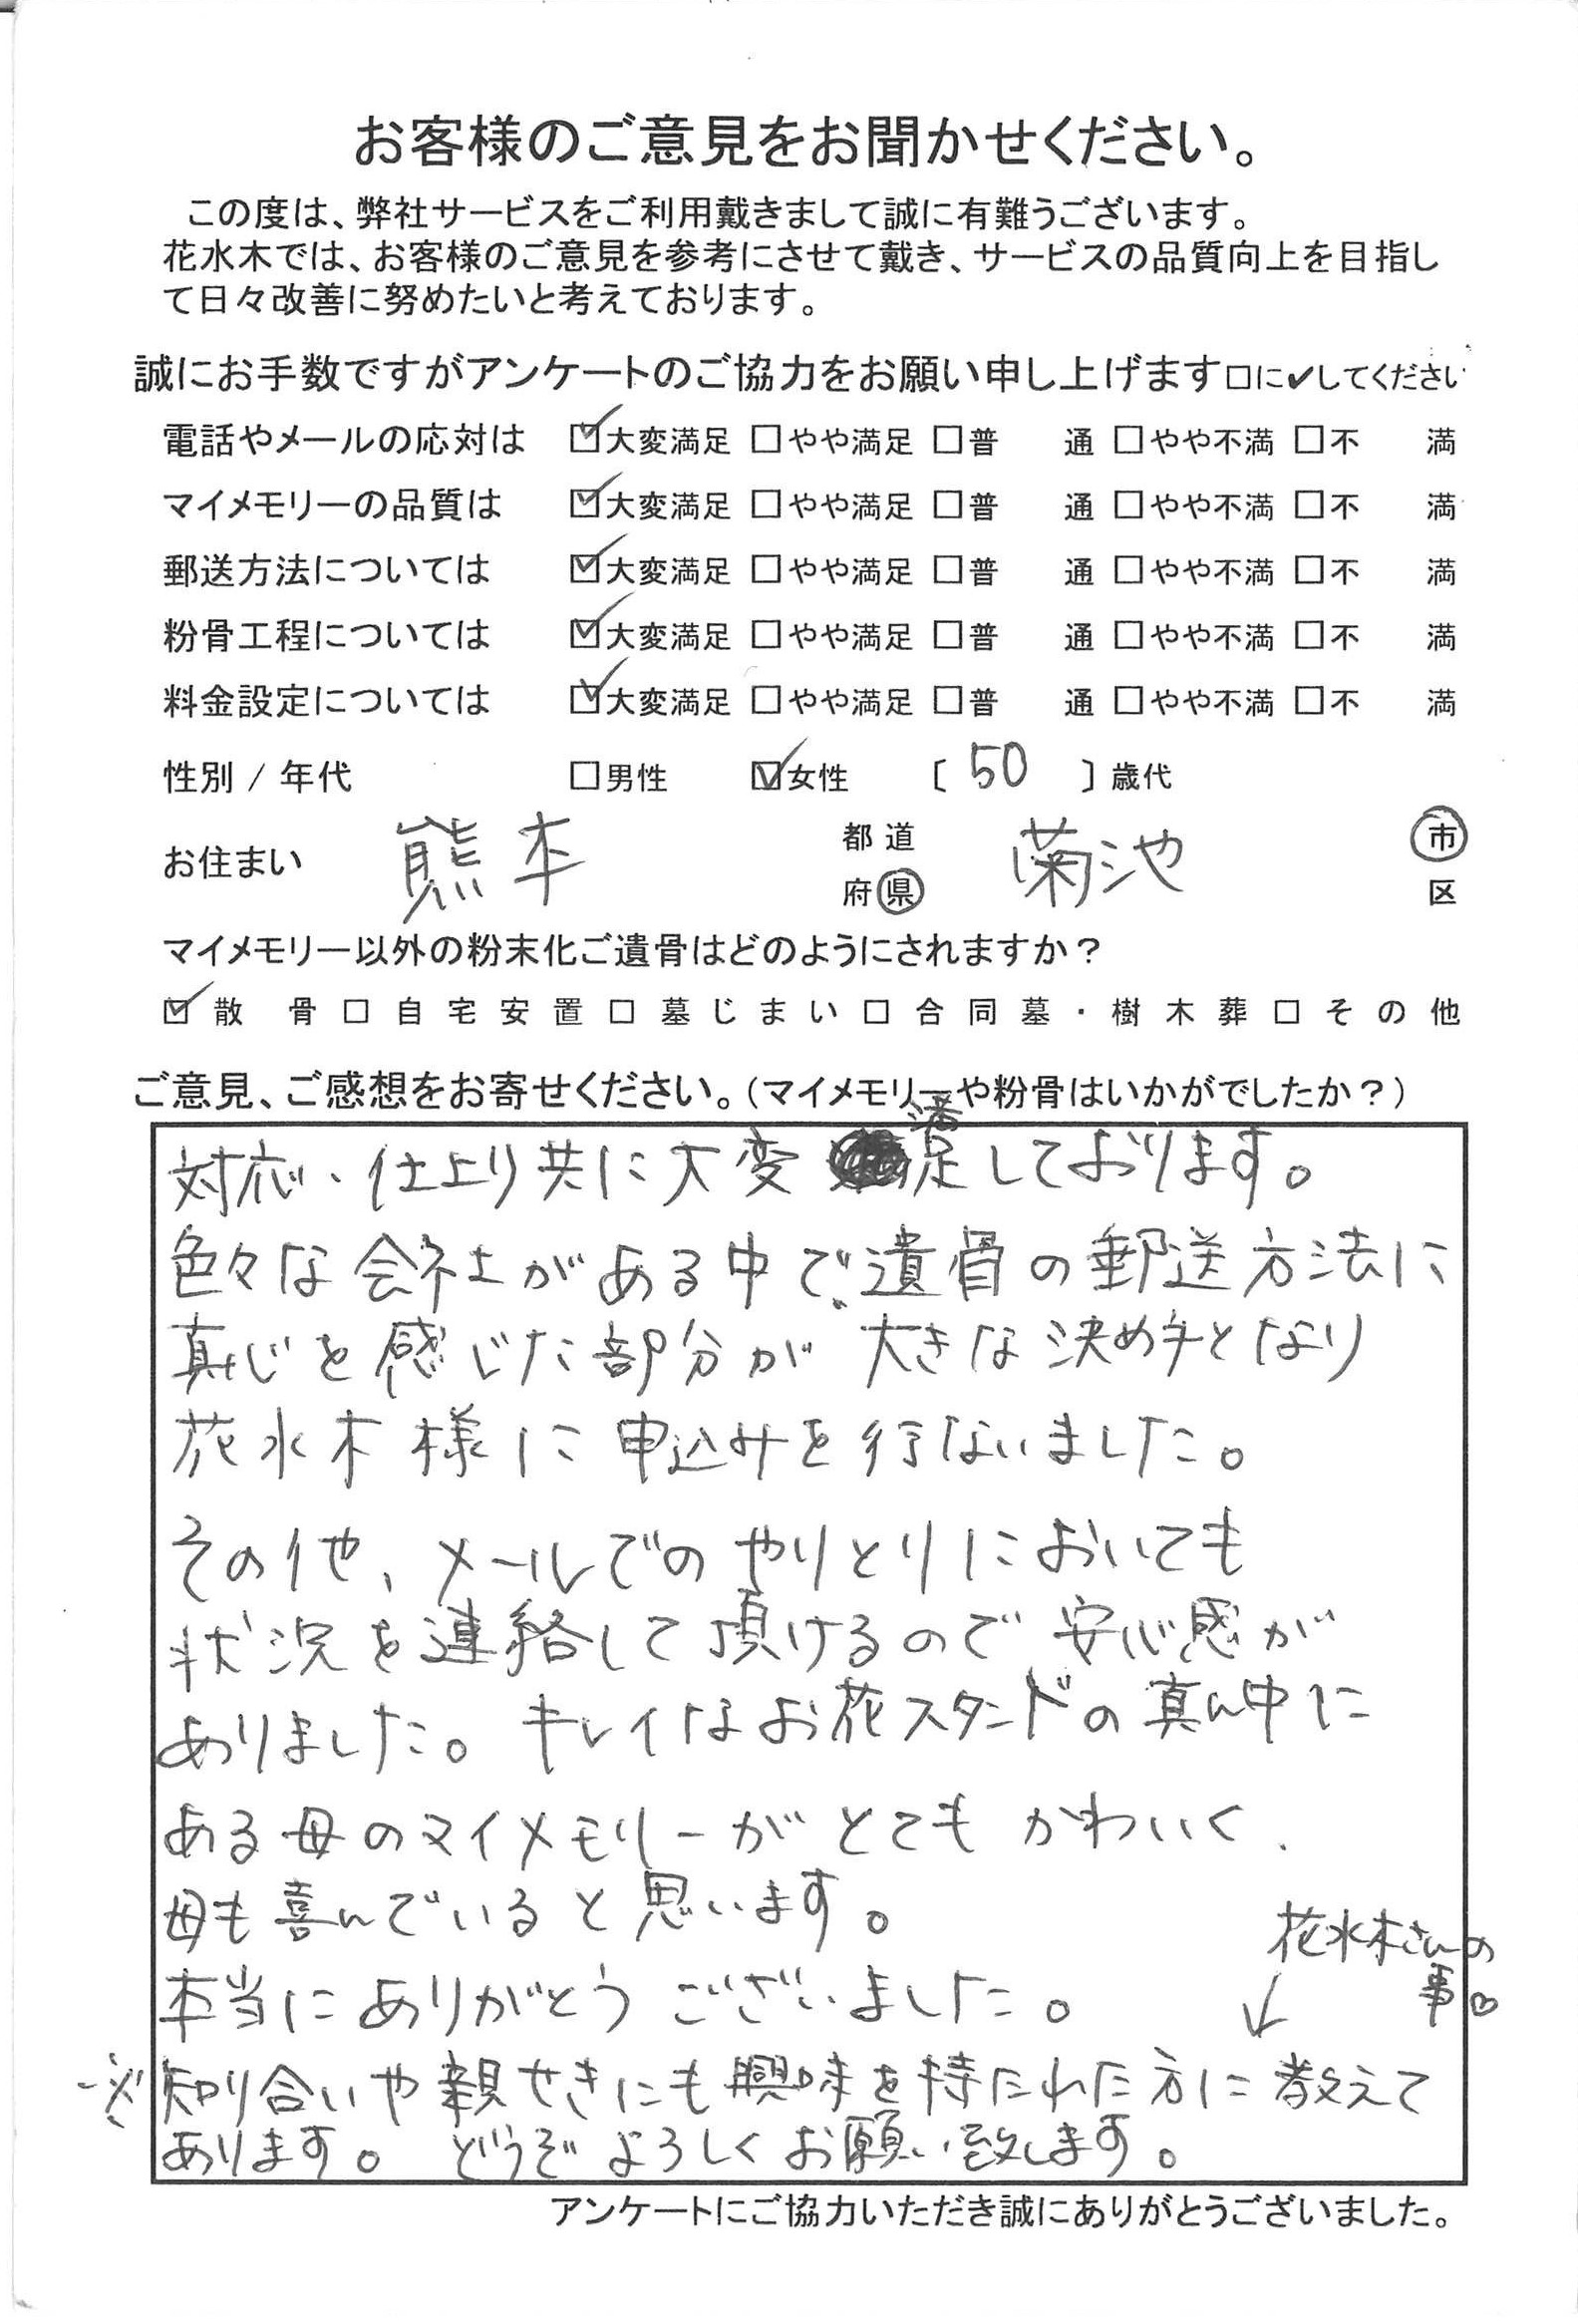 お客様のご意見をお聞かせください。
この度は、弊社サービスをご利用戴きまして誠に有難うございます。
花水木では、お客様のご意見を参考にさせて戴き、サービスの品質向上を目指し
て日々改善に努めたいと考えております。
誠にお手数ですがアンケートのご協力をお願い申し上げます□に✓してください
電話やメールの応対は ☑大変満足 □やや満足 □普 通 □やや不満 □不 満
マイメモリーの品質は ☑大変満足 □やや満足 □普 通 □やや不満 □不 満
郵送方法については ☑大変満足 □やや満足 □普 通 □やや不満 □不 満
粉骨工程については ☑大変満足 □やや満足 □普 通 □やや不満 □不 満
料金設定については ☑大変満足 □やや満足 □普 通 □やや不満 □不 満
性別 / 年代 □男性 ☑女性 〔 50 〕歳代
お住まい 熊本 都道府県 菊池 市区
マイメモリー以外の粉末化ご遺骨はどのようにされますか？
☑散 骨 □自宅安置 □墓じまい □合同墓・樹木葬 □その他
ご意見、ご感想をお寄せください。（マイメモリーや粉骨はいかがでしたか？）
対応、仕上り共に大変満足しております。
色々な会社がある中で、遺骨の郵送方法に
真心を感じた部分が大きな決め手となり
花水木様に申込みを行ないました。
その他、メールでのやりとりにおいても
状況を連絡して頂けるので安心感が
ありました。キレイなお花スタンドの真ん中に
ある母のマイメモリーがとてもかわいく、
母も喜んでいると思います。
本当にありがとうございました。
花水木さんの
事♡
↓
※知り合いや親せきにも興味を持たれた方に教えて
あります。どうぞよろしくお願い致します。
アンケートにご協力いただき誠にありがとうございました。